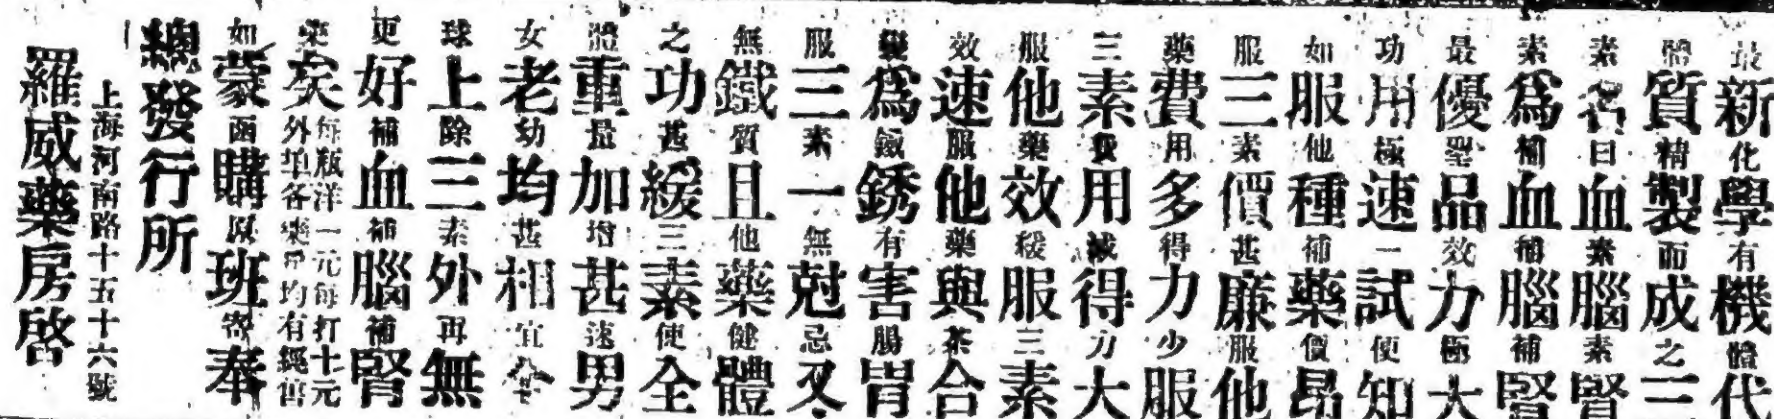 最新化學有機體代
體質精製而成之三
素名曰血素腦素腎
素爲補血補腦補腎
最優聖品效力極大
功用極速一試便知
如服他種補藥價昂
服三素價甚廉服他
藥費用多得力少服
三素費用減得力大
服他藥效緩服三素
效速服他藥與茶合
變爲鐵銹有害腸胃
服三素一無尅忌又
無鐵質且他藥健體
之功甚緩三素使全
體重量加增甚速男
女老幼均甚相宜全
球上除三素外再無
更好補血補腦補腎
藥矣每瓶洋一元每打十元
外埠各藥房均有經售
如蒙函購原班寄奉
總發行所
上海河南路十五十六號
羅威藥房啓